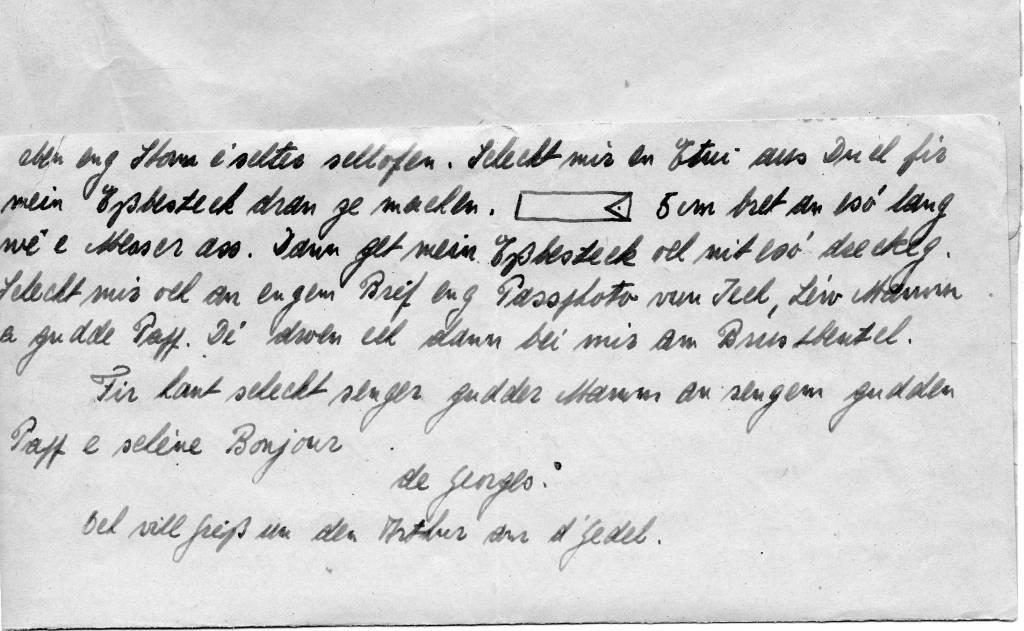 eben eng Stonn é seltes schlofen. Scheckt mir en Etui aus Duch fir
mein Eßbesteck dran ze machen. 5 cm bret an esó lang
wé e Messer ass. Dann get mein Eßbesteck och nit esó dreckeg.
Scheckt mir och an engem Bréf eng Passphoto vun Iech, Léiw Mamm
a gudde Papp. Dé droen ech dann bei mir am Brustbeutel.
Fir haut scheckt senger gudder Mamm an sengem gudden
Papp e schéine Bonjour
de Georges.
Och vill Gréiß un den Arthur an d'Gedel.